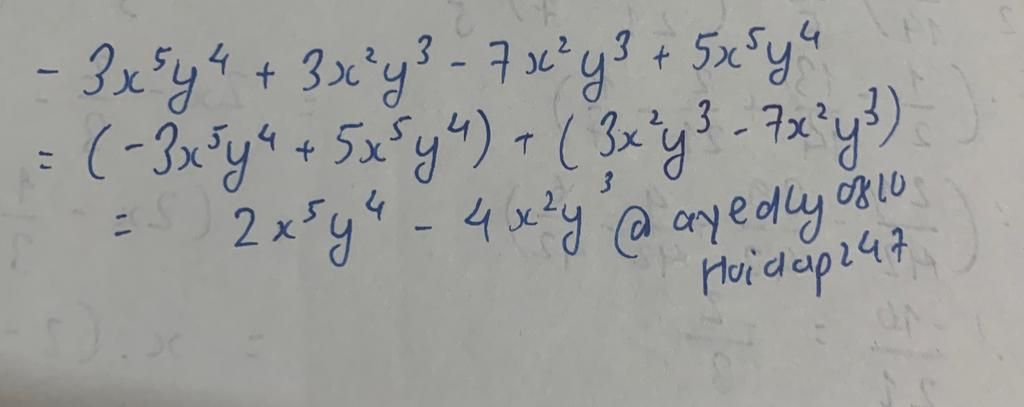 - 3x⁵y⁴ + 3x²y³ - 7x²y³ + 5x⁵y⁴
= (-3x⁵y⁴ + 5x⁵y⁴) + (3x²y³ - 7x²y³)
= 2x⁵y⁴ - 4x²y³ @ayedly0810
Hoidap247